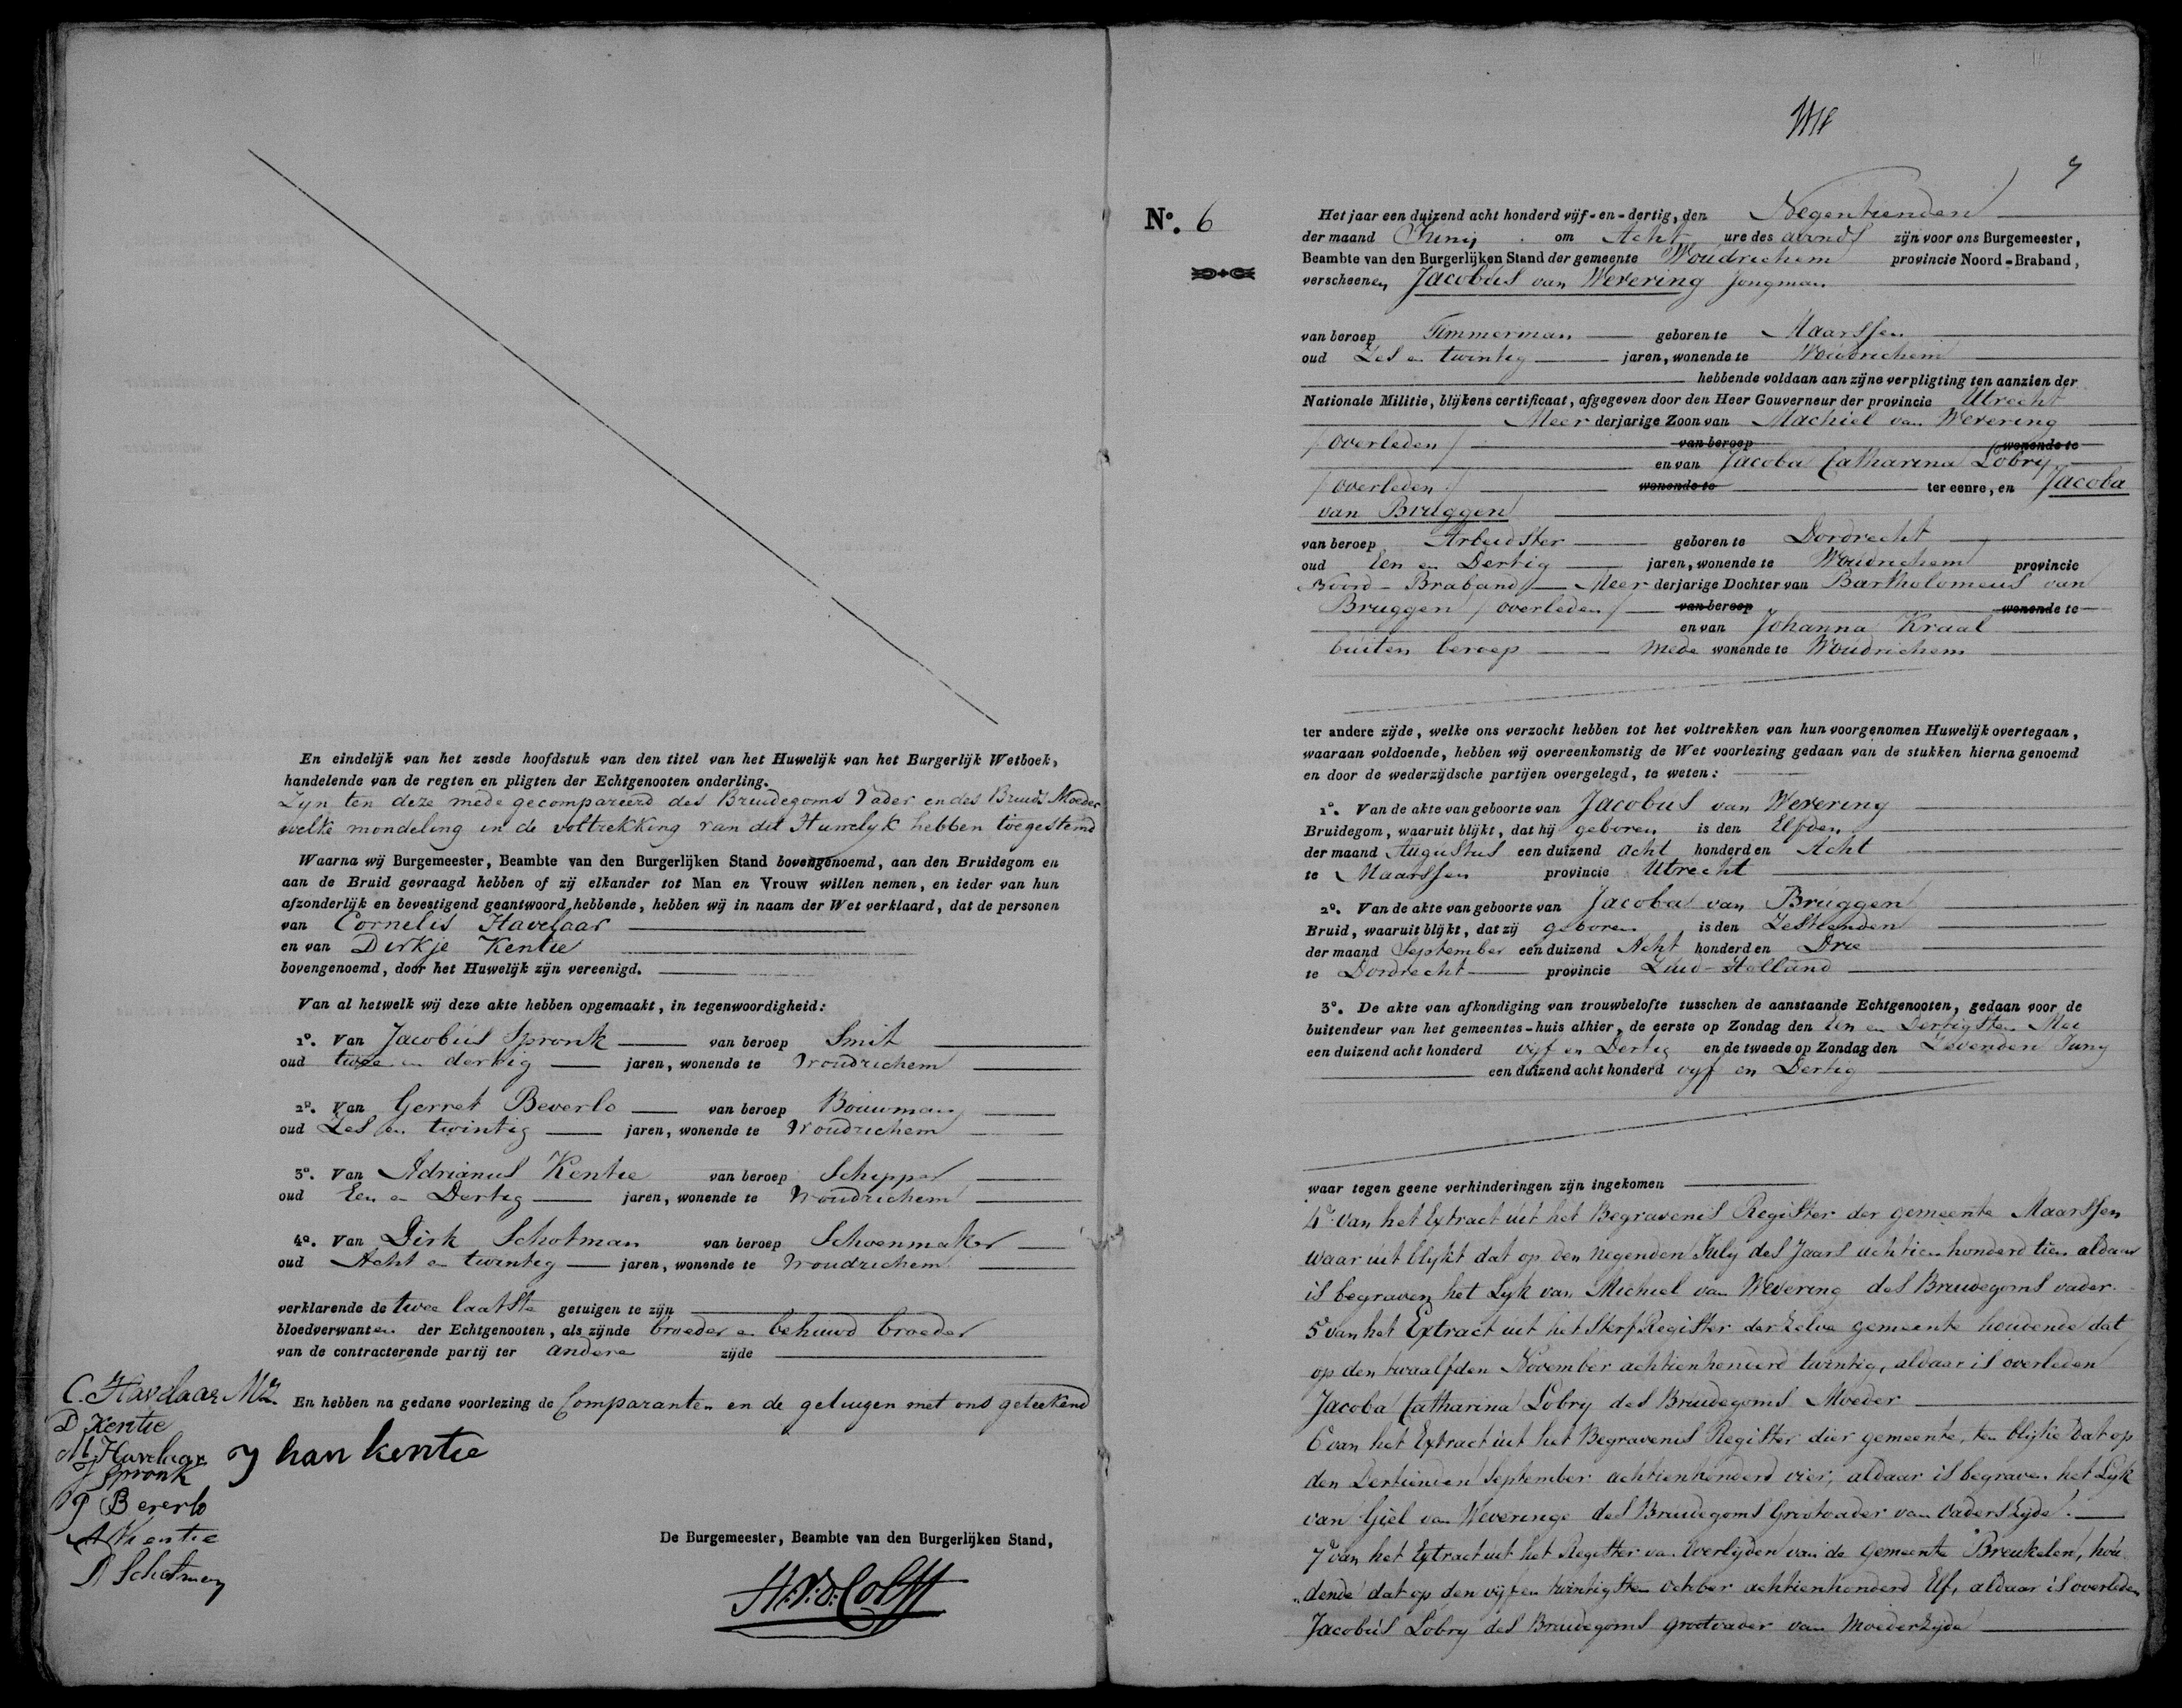 En eindelijk van het zesde hoofdstuk van den titel van het Huwelijk van het Burgerlijk Wetboek,
handelende van de regten en pligten der Echtgenooten onderling.
Zyn ten deze mede gecompareerd des Bruidegoms Vader en des Bruids Moeder
welke mondeling in de voltrekking van dit Huwelyk hebben toegestemd
Waarna wij Burgemeester, Beambte van den Burgerlijken Stand bovengenoemd, aan den Bruidegom en
aan de Bruid gevraagd hebben of zij elkander tot Man en Vrouw willen nemen, en ieder van hun
afzonderlijk en bevestigend geantwoord hebbende, hebben wij in naam der Wet verklaard, dat de personen
van Cornelis Havelaar
en van Dirkje Kentie
bovengenoemd, door het Huwelijk zijn vereenigd.
Van al hetwelk wij deze akte hebben opgemaakt, in tegenwoordigheid:
1º. Van Jacobus Spronk van beroep Smit
oud twee en dertig jaren, wonende te Woudrichem
2º. Van Gerret Beverlo van beroep Bouwman
oud Zes en twintig jaren, wonende te Woudrichem
3º. Van Adrianus Kentie van beroep Schipper
oud Een en Dertig jaren, wonende te Woudrichem
4º. Van Dirk Schotman van beroep Schoenmaker
oud Acht en twintig jaren, wonende te Woudrichem
verklarende de twee laatste getuigen te zijn
bloedverwanten der Echtgenooten, als zijnde broeder en behuwd broeder
van de contracterende partij ter andere zijde
En hebben na gedane voorlezing de Comparanten en de getuigen met ons geteekend
C. Havelaar Mz.
D Kentie
M Havelaar
J Spronk
J han kentie
G Beverlo
A Kentie
D Schotman
De Burgemeester, Beambte van den Burgerlijken Stand,
7
Nº. 6
Het jaar een duizend acht honderd vijf-en-dertig, den Negentienden
der maand Junij om Acht ure des avonds zijn voor ons Burgemeester,
Beambte van den Burgerlijken Stand der gemeente Woudrichem provincie Noord-Braband,
verscheenen Jacobus van Wevering Jongman
van beroep Timmerman geboren te Maarssen
oud Zes en twintig jaren, wonende te Woudrichem
hebbende voldaan aan zijne verpligting ten aanzien der
Nationale Militie, blijkens certificaat, afgegeven door den Heer Gouverneur der provincie Utrecht
Meer derjarige Zoon van Machiel van Wevering
/ overleden / van beroep wonende te
en van Jacoba Catharina Lobry
/ overleden / wonende te ter eenre, en Jacoba
van Bruggen
van beroep Arbeidster geboren te Dordrecht
oud Een en Dertig jaren, wonende te Woudrichem provincie
Noord-Braband Meer derjarige Dochter van Bartholomeus van
Bruggen / overleden / van beroep wonende te
en van Johanna Kraal
buiten beroep mede wonende te Woudrichem
ter andere zijde, welke ons verzocht hebben tot het voltrekken van hun voorgenomen Huwelijk overtegaan,
waaraan voldoende, hebben wij overeenkomstig de Wet voorlezing gedaan van de stukken hierna genoemd
en door de wederzijdsche partijen overgelegd, te weten:
1º. Van de akte van geboorte van Jacobus van Wevering
Bruidegom, waaruit blijkt, dat hij geboren is den Elfden
der maand Augustus een duizend acht honderd en Acht
te Maarssen provincie Utrecht
2º. Van de akte van geboorte van Jacoba van Bruggen
Bruid, waaruit blijkt, dat zij geboren is den Zestienden
der maand September een duizend Acht honderd en Drie
te Dordrecht provincie Zuid-Holland
3º. De akte van afkondiging van trouwbelofte tusschen de aanstaande Echtgenooten, gedaan voor de
buitendeur van het gemeentes-huis alhier, de eerste op Zondag den Een en Dertigsten Mei
een duizend acht honderd vyf en Dertig en de tweede op Zondag den Zevenden Juny
een duizend acht honderd vyf en Dertig
waar tegen geene verhinderingen zijn ingekomen
4º van het Extract uit het Begravenis Register der gemeente Maarssen
waar uit blykt dat op den negenden July des Jaars achtien honderd tien aldaar
is begraven het Lyk van Michiel van Wevering des Bruidegoms vader.
5º van het Extract uit het Sterf Register der zelve gemeente houdende dat
op den twaalfden November achtienhonderd twintig, aldaar is overleden
Jacoba Catharina Lobry des Bruidegoms Moeder
6º van het Extract uit het Begravenis Register dier gemeente, ten blijke dat op
den Dertienden September achtienhonderd vier, aldaar is begraven het Lyk
van Giel van Weveringe des Bruidegoms Grootvader van vaderszyde.
7º van het Extract uit het Register van Overlyden van de gemeente Breukelen, hou
dende dat op den vyf en twintigsten october achtienhonderd Elf, aldaar is overleden
Jacobus Lobry des Bruidegoms grootvader van Moederzyde